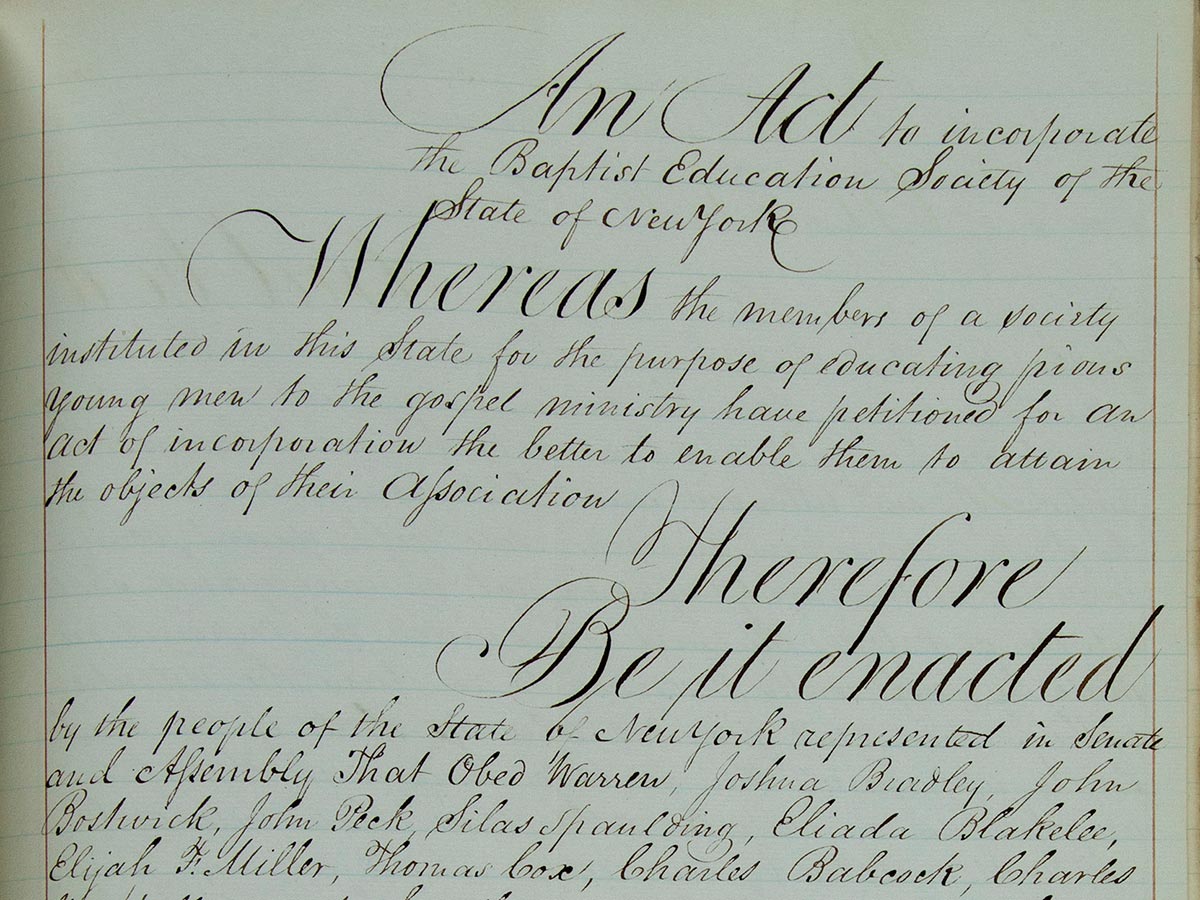 An Act to incorporate
the Baptist Education Society of the
State of New York
Whereas the members of a society
instituted in this State for the purpose of educating pious
young men to the gospel ministry have petitioned for an
act of incorporation the better to enable them to attain
the objects of their Association
Therefore
Be it enacted
by the people of the State of New York represented in Senate
and Assembly That Obed Warren, Joshua Bradley, John
Bostwick, John Peck, Silas Spaulding, Eliada Blakelee,
Elijah F. Miller, Thomas Cox, Charles Babcock, Charles